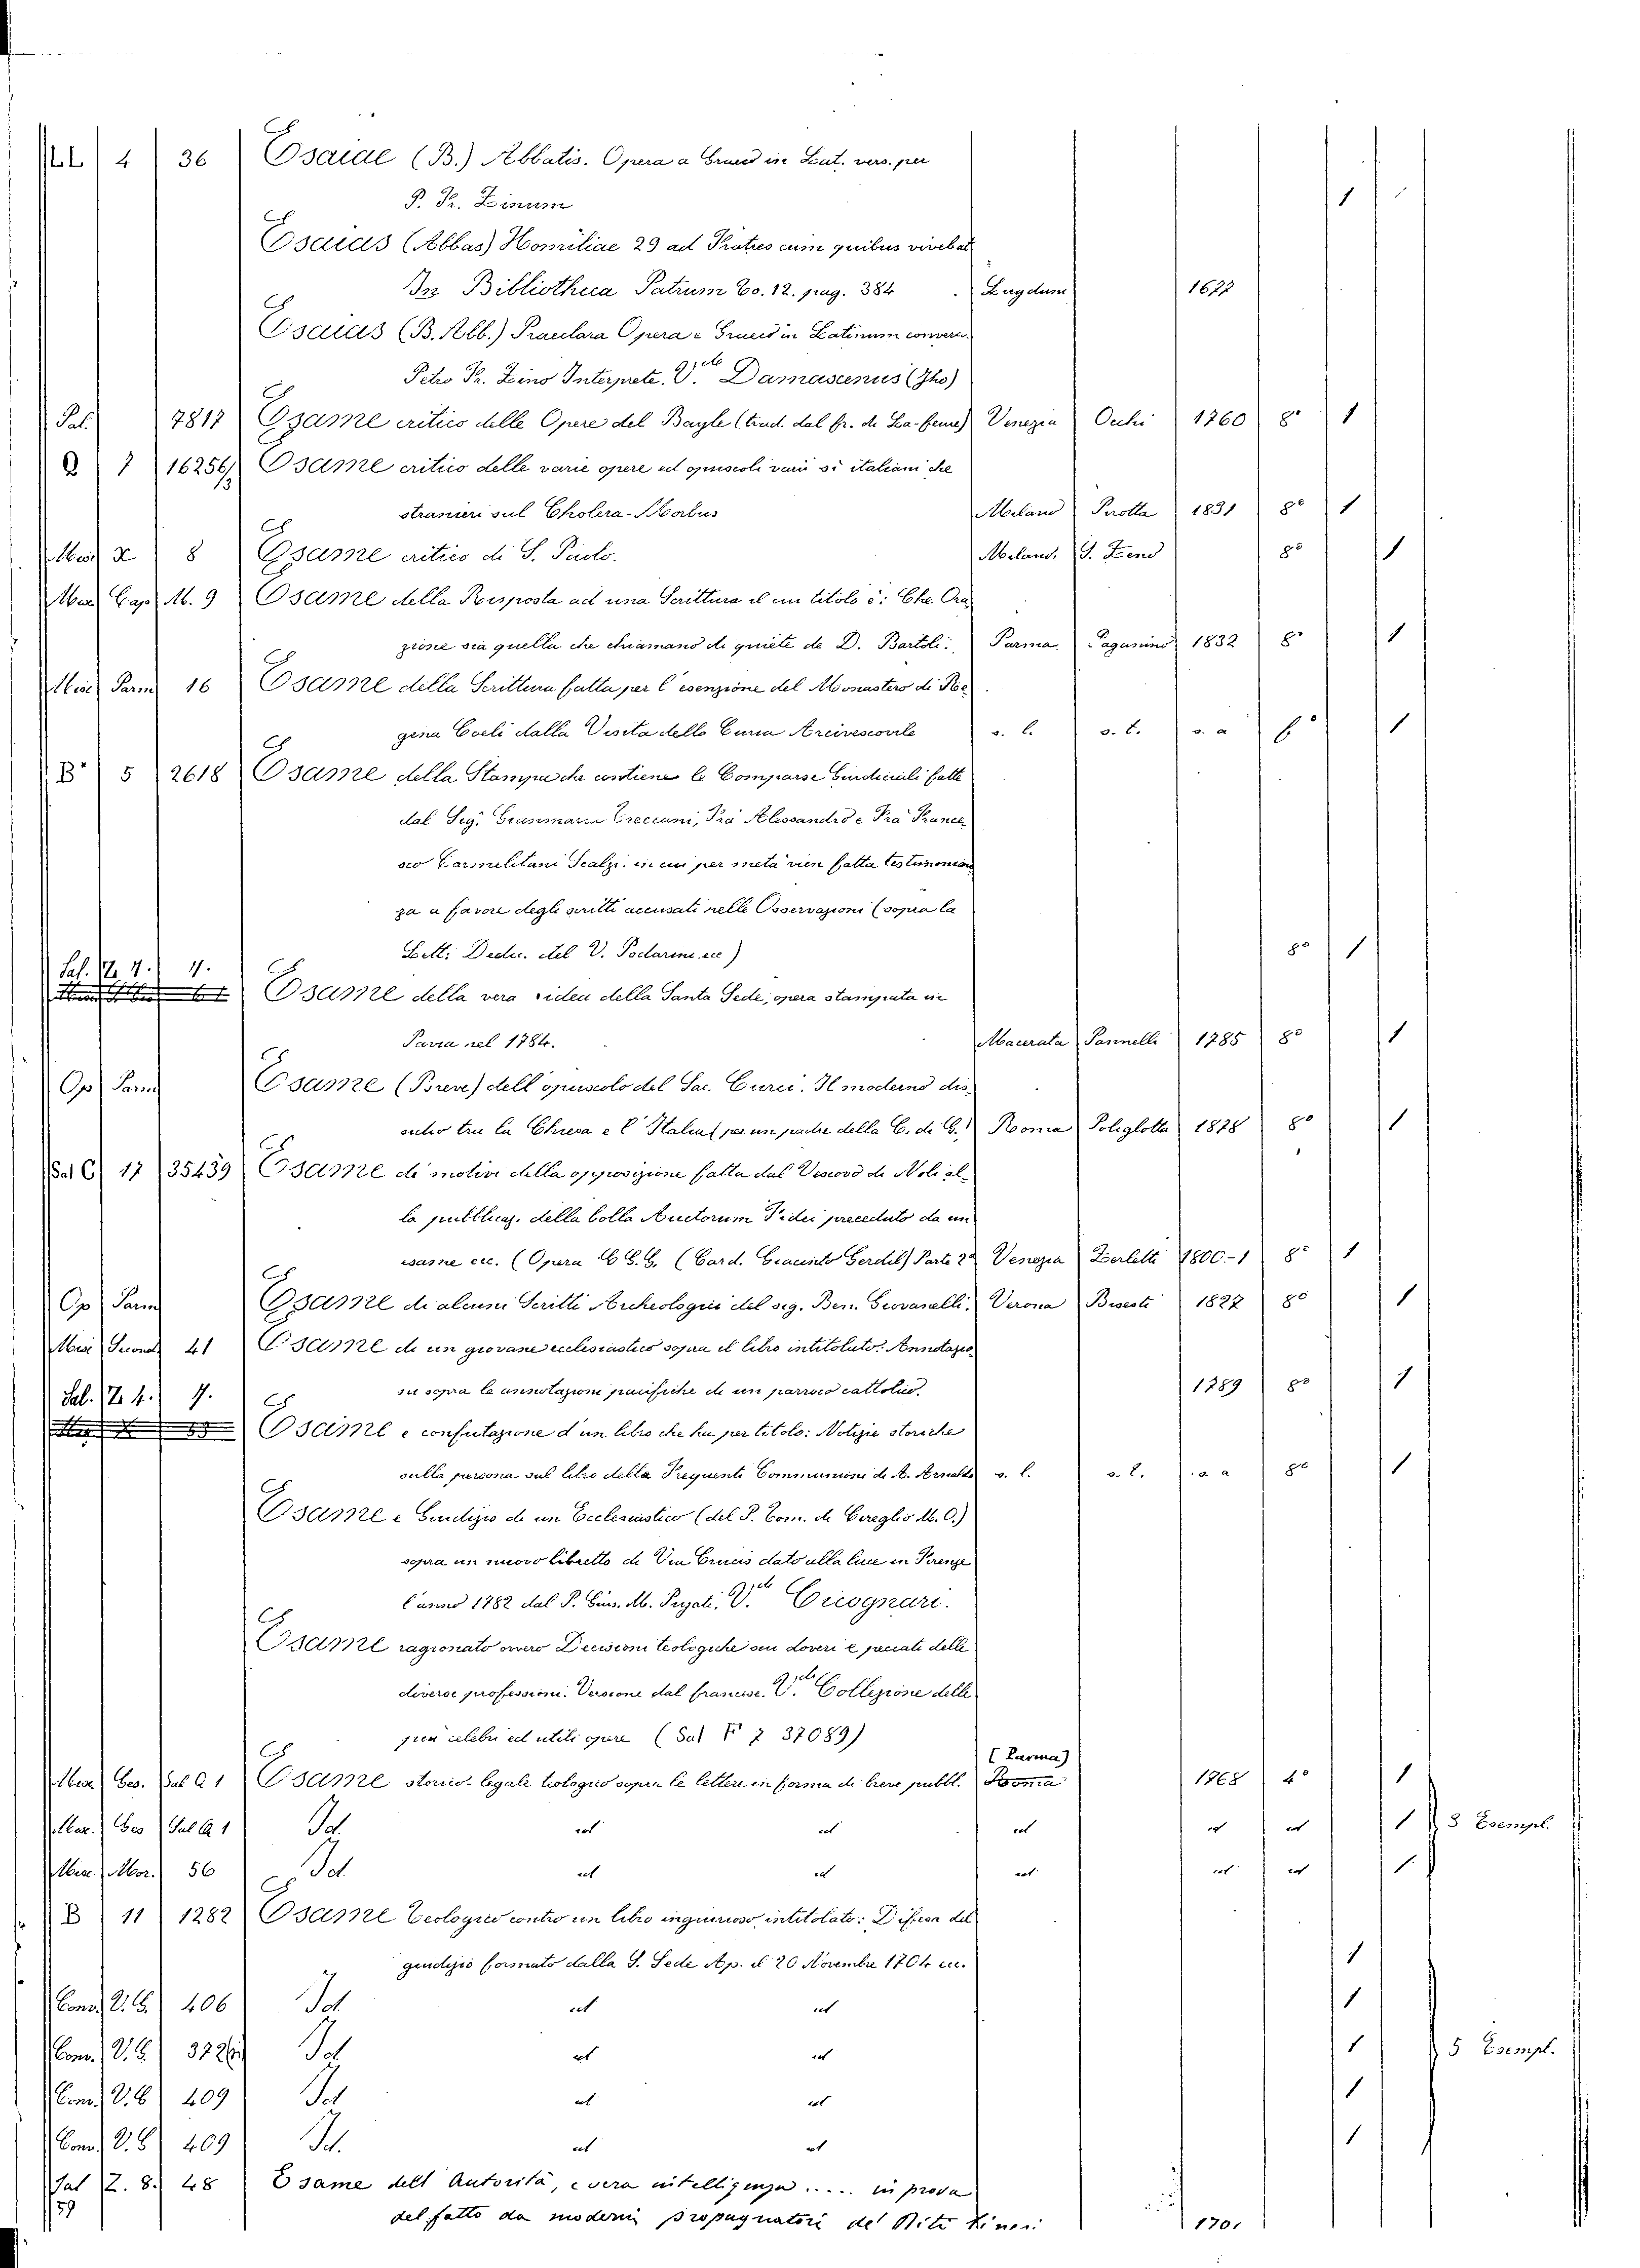 LL 4 36 Esaiae (B.) Abbatis. Opera a Graeco in Lat. vers. per
P. Fr. Zinum 1
Esaias (Abbas) Homiliae 29 ad Fratres cum quibus vivebat
In Bibliotheca Patrum To. 12. pag. 384 Lugdum 1677
Esaias (B. Abb.) Praeclara Opera e Graeco in Latinum conversa
Petro Fr. Zino Interprete. V. Damascenus (Jho)
Pal. 7817 Esame critico delle Opere del Bayle (trad. dal fr. de La-febure) Venezia Occhi 1760 8° 1
Q 7 16256/13 Esame critico delle varie opere ed opuscoli varii si italiani che
stranieri sul Cholera-Morbus Milano Pirotta 1831 8° 1
Misc X 8 Esame critico di S. Paolo. Milano. S. Zeno 8° 1
Misc Cap. M. 9 Esame della Risposta ad una Scrittura il cui titolo è: Che Ora
zione sia quella che chiamano di quiete de D. Bartoli. Parma Paganino 1832 8° 1
Misc Parm 16 Esame della Scrittura fatta per l'esenzione del Monastero di Re
gina Coeli dalla Visita della Curia Arcivescovile s. l. s. t. s. a f° 1
B 5 2618 Esame della Stampa che contiene le Comparse Giudiciali fatte
dal Sig. Gianmaria Greccani, Fra Alessandro e Fra France
sco Carmelitani Scalzi. in cui per metà vien fatta testimonian
za a favore degli scritti accusati nelle Osservazioni (sopra la
Lett. Dedic. del V. Podarini ecc) 8° 1
Sal. Z. 4. 4.
Esame della vera idea della Santa Sede, opera stampata in
Pavia nel 1784. Macerata Pannelli 1785 8° 1
Op Parm Esame (Breve) dell'opuscolo del Sac. Curci. Il moderno dis
sidio tra la Chiesa e l'Italia (per un padre della C. di G.) Roma Poliglotta 1878 8° 1
Sal C 17 35439 Esame de' motivi della opposizione fatta dal Vescovo di Noli al
la pubblicaz. della bolla Auctorem Fidei preceduto da un
esame ecc. (Opera G. S. G. (Card. Giacinto Gerdil) Parte 2ª Venezia Zerletti 1800-1 8° 1
Op Parm Esame di alcuni Scritti Archeologici del sig. Ben. Giovanelli. Verona Bisesti 1827 8° 1
Misc Second 41 Esame di un giovane ecclesiastico sopra il libro intitolato: Annotazio
ni sopra le annotazioni pacifiche di un parroco cattolico. 1789 8° 1
Sal. Z. 4. 4.
Esame e confutazione d'un libro che ha per titolo: Notizie storiche
sulla persona sul libro della Frequente Communione di A. Arnaldo s. l. s. t. s. a 8° 1
Esame e Giudizio di un Ecclesiastico (del P. Com. de Cereglio M. O.)
sopra un nuovo libretto di Via Crucis dato alla luce in Firenze
l'anno 1782 dal P. Gius. M. Pujati. V. Cicognari.
Esame ragionato ovvero Decisioni teologiche sui doveri e peccati delle
diverse professioni. Versione dal francese. V. Collezione delle
più celebri ed utili opere (Sal F 7 37089)
Misc Ges. Sal Q 1 Esame storico-legale teologico sopra le lettere in forma di breve pubbl. [Parma] Roma 1768 4° 1
Misc. Ges Sal Q 1 Id. id id id id id 1 3 Esempl.
Misc. Mor. 56 Id id id id id id 1
B 11 1282 Esame teologico contro un libro ingiurioso, intitolato: Difesa del
giudizio formato dalla S. Sede Ap. il 20 Novembre 1704 ecc. 1
Cons. V. G. 406 Id id id 1
Cons. V. G. 378 Id id id 1 5 Esempl.
Cons. V. G 409 Id id id 1
Cons. V. G 409 Id. id id 1
Sal Z. 8. 48 Esame dell Autorità, e vera intelligenza ..... in prova
59 del fatto da moderni propugnatori de' Riti Cinesi 1701